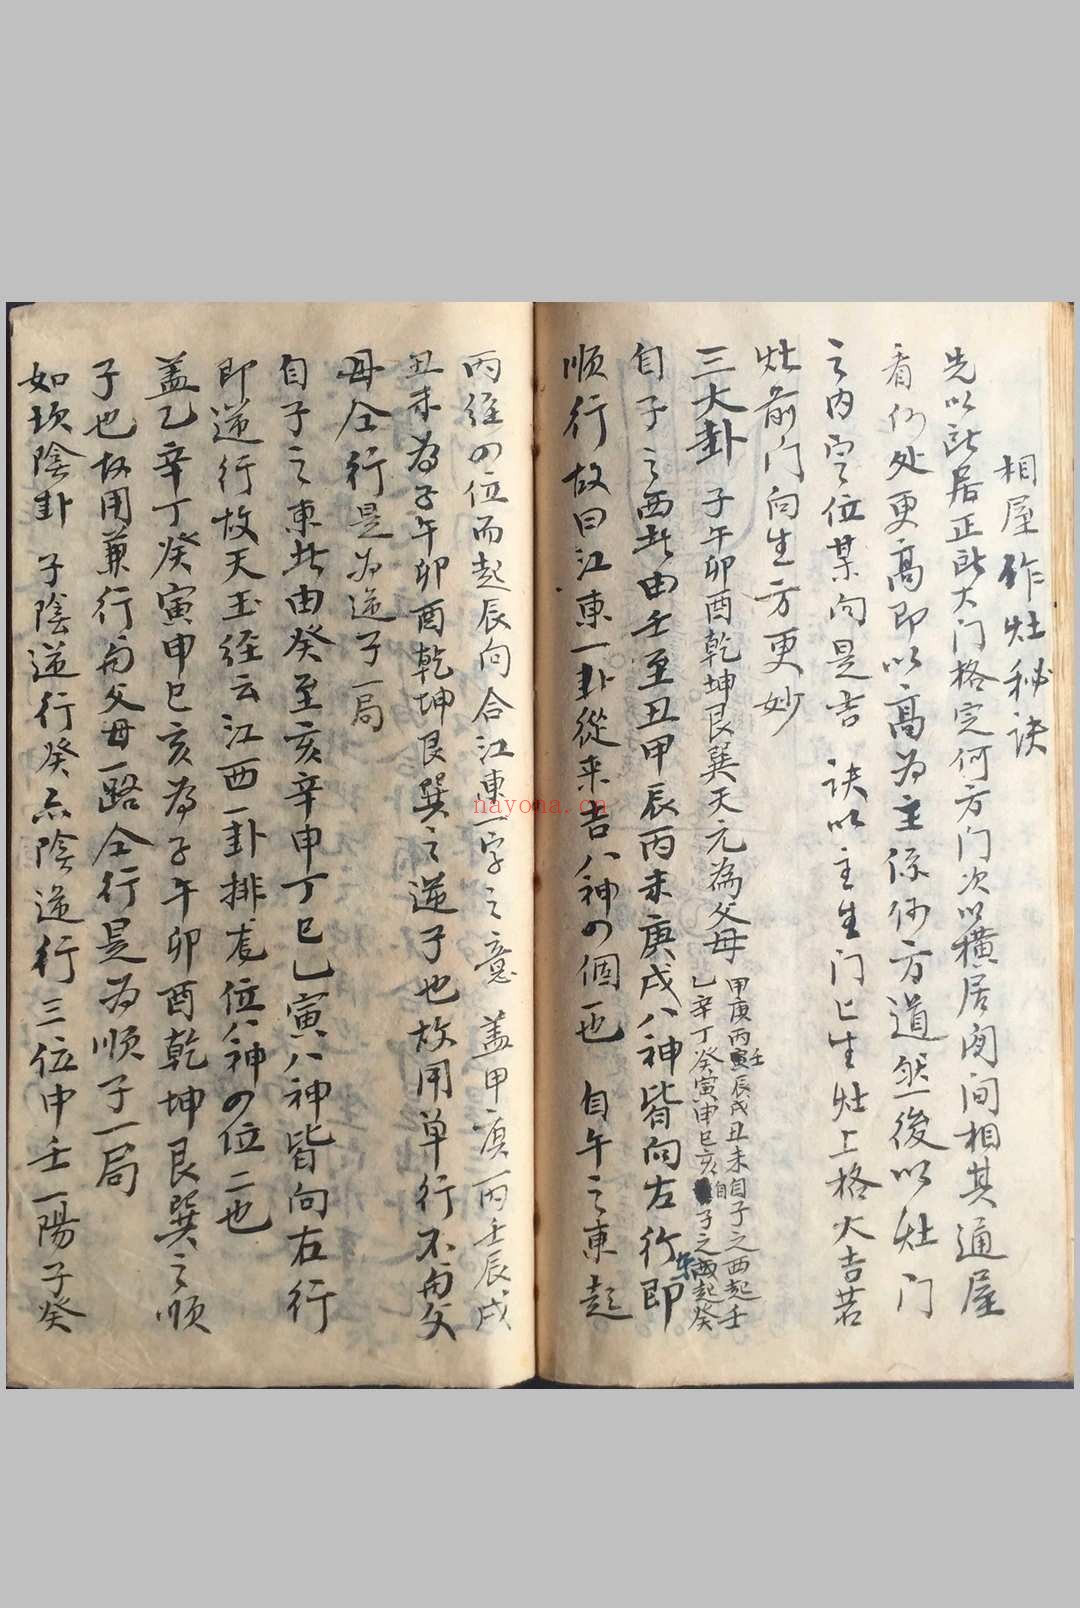 相屋作灶秘诀
先以此居正此大门格定何方门次以横居闵间相其通屋
看何处更高即以高为主係何方道然後以灶门
之内定位某向是吉 诀以主生门匕生灶上格大吉若
灶前门向生方更妙
三大卦 子午卯酉乾坤艮巽天元為父母
甲庚丙壬辰戌丑未自子之西起壬
乙辛丁癸寅申巳亥自子之東起癸
自子之西此由壬至丑甲辰丙未庚戌八神皆向左行即
顺行故曰江東一卦從来吉八神四個一也 自午之東起
丙經四位而起辰向合江東一字之意 盖甲庚丙壬辰戌
丑未為子午卯酉乾坤艮巽之逆子也故用单行不與父
母仝行是为逆子一局
自子之東此由癸至亥辛申丁巳乙寅八神皆向右行
即逆行故天玉经云江西一卦排龙位八神四位二也
盖乙辛丁癸寅申巳亥為子午卯酉乾坤艮巽之顺
子也故用兼行與父母一路仝行是为顺子一局
如坎陰卦 子陰逆行癸亦陰逆行三位中壬一陽子癸
nayona.cn